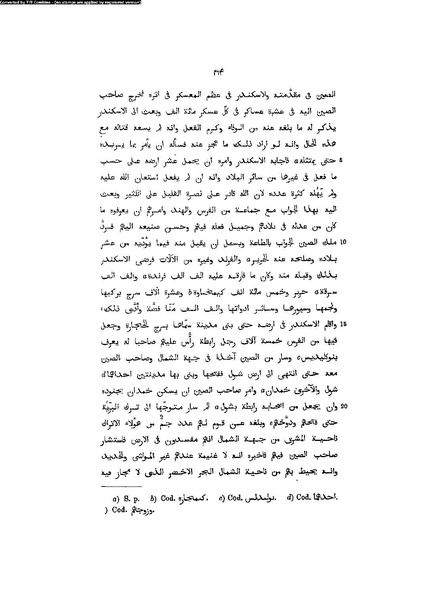 Converted by Tiff Combine - (no stamps are applied by registered version)
٣١٣
الصين فى مقدّمته والاسكندر فى عظم المعسكر فى اثره فخرج صاحب
الصين اليه فى عشرة عساكر فى كلّ عسكر مائة الف وبعث الى الاسكندر
يذكر له ما بلغه عنه من الوفاء وكرم الفعل وانه لم يسعه قتاله مع
هذه الحال وانه لو اراد ذلك ما عجز عنه فسأله ان يأمر بما يريده
5 حتى يمتثله فاجابه الاسكندر وامره ان يحمل عُشر ارضه على حسب
ما فعل فى غيرها من سائر البلاد وانه ان لم يفعل استعان الله عليه
ولم يَهُله كثرة عدده لان الله قادر على نصرة القليل على الكثير وبعث
اليه بهذا الجواب مع جماعة من الفرس والهند وامرهم ان يعرفوه ما
كان من عدله فى بلادهم وجميل فعله فيهم وحسن صنيعه اليهم فردّ
10 ملك الصين الجواب بالطاعة ويسعل ان يقبل منه فيما يؤدّيه من عشر
بلاده وصلاحه عنه الحرير والفرند وغيره من الآلات فرضى الاسكندر
بذلك وقبله منه وكان ما فارقه عليه الف الف فرندة والف الف
سرقة حرير وخمس مائة الف وعشرة آلاف سرج بركبها
ولجمها وسيورها وسائر ادواتها والف الف منّا فضّة وأدّى ذلك
15 واقام الاسكندر فى ارضه حتى بنى مدينة سمّاها برج الحجارة وجعل
فيها من الفرس خمسة آلاف رجل رابطة رأّس عليهم صاحبا له يعرف
وسار من الصين آخذا فى جهة الشمال وصاحب الصين
معه حتى انتهى الى ارض شول ففتحها وبنى بها مدينتين احداهما
شول والأخرى خمدان وامر صاحب الصين ان يسكن خمدان بجنوده
20 وان يجعل من اصحابه رابطة بشول ثم سار متوجّها الى ترك البرّيّة
حتى فاتحهم ودوّخهم وبلغه عن قوم لهم عدد جمّ من هؤلاء الاتراك
ناحية المشرق من جهة الشمال انهم مفسدون فى الارض فاستشار
صاحب الصين فيهم فاخبره انه لا غنيمة عندهم غير المواشى والحديد
وانه يحيط بهم من ناحية الشمال البحر الاخضر الذى لا يجاز فيه
a) S. p. b) Cod. c) Cod. d) Cod. احداها.
) Cod.